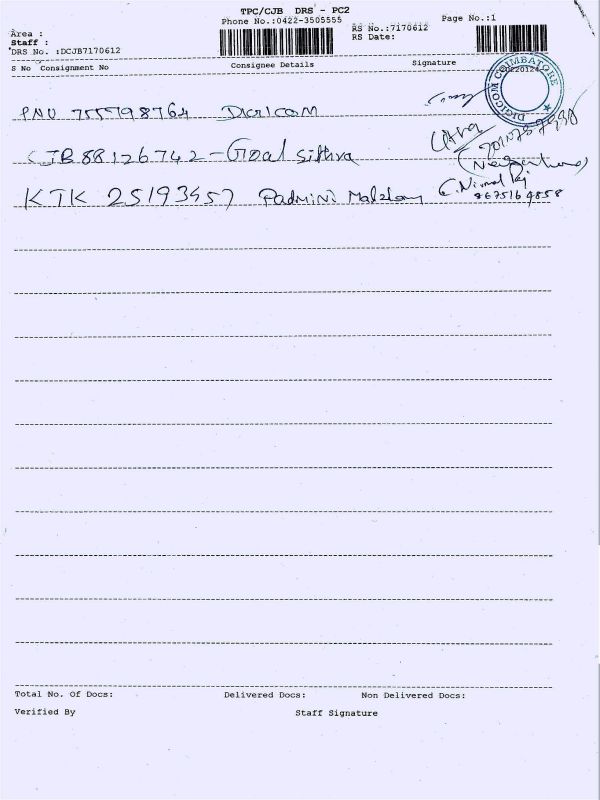 TPC/CJB DRS - PC2
Phone No.:0422-3505555
Page No.:1
Area :
RS No.:7170612
Staff :
RS Date:
DRS No. :DCJB7170612
S No Consignment No Consignee Details Signature
DIGICOM COIMBATORE
PNU 755798764 Digicom
CJB 88126742 - Goal Sithra
KTK 25193957 Padmini
C. Nirmal Raj
8675164858
Total No. Of Docs: Delivered Docs: Non Delivered Docs:
Verified By Staff Signature